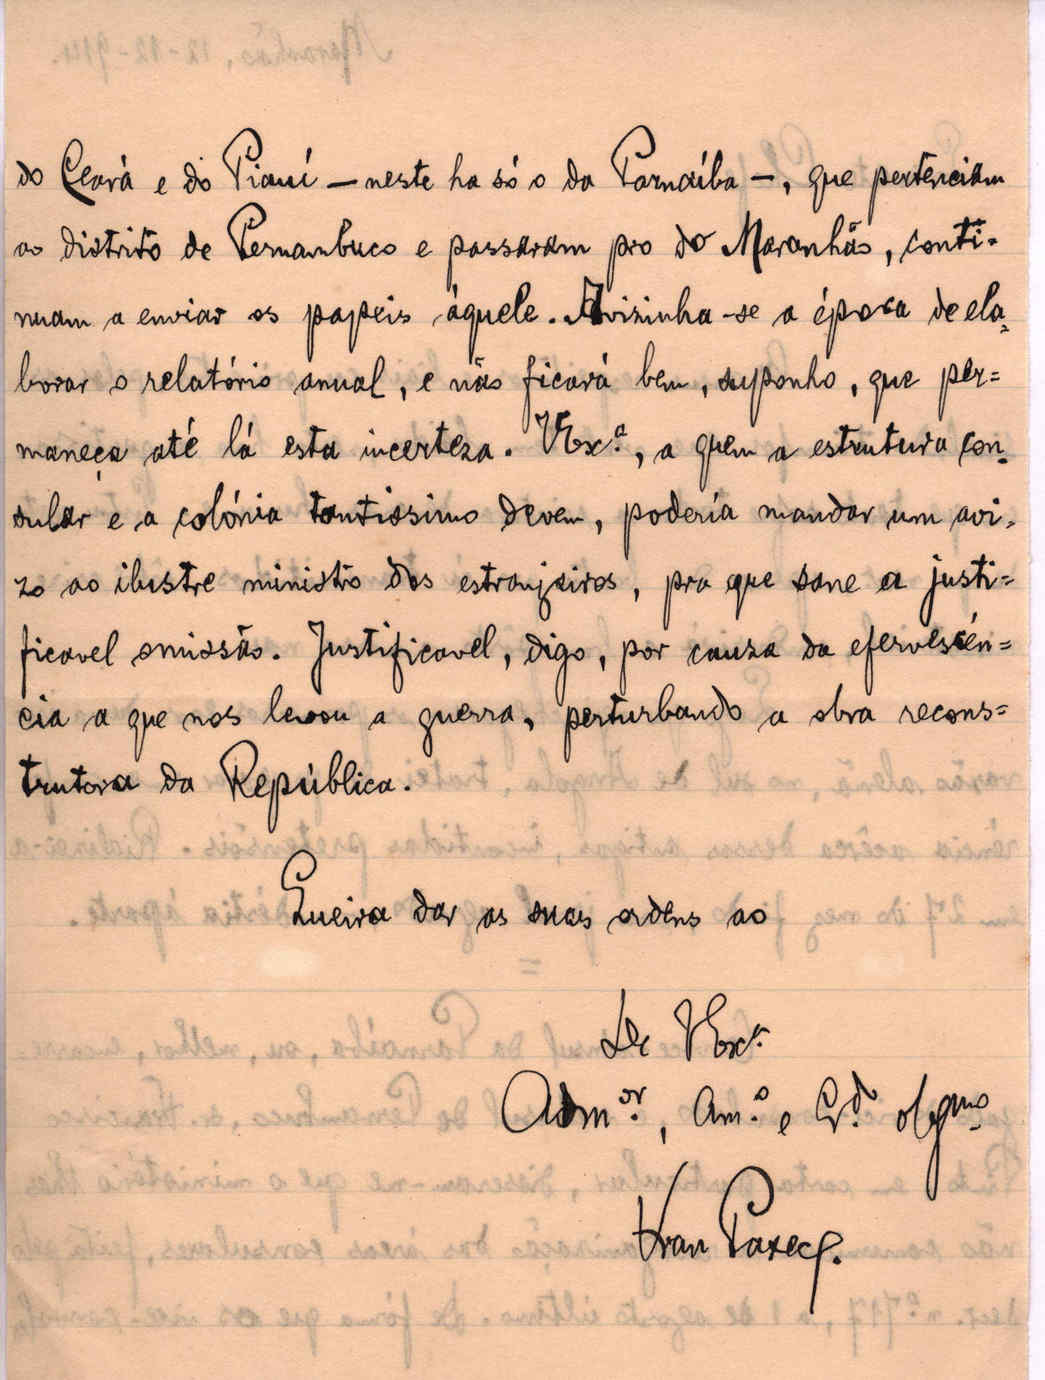 do Ceará e do Piauí — neste ha só o da Parnaíba —, que pertenciam
ao distrito de Pernambuco e passaram pro do Maranhão, conti=
nuam a enviar os papeis áquele. Avizinha-se a época de ela=
borar o relatório anual, e não ficará bem, suponho, que per=
maneça até lá esta incerteza. V Exª., a quem a estrutura con=
sular e a colónia tantissimo devem, poderia mandar um avi=
zo ao ilustre ministro dos estranjeiros, pra que sane a justi=
ficavel omissão. Justificavel, digo, por cauza da efervescên=
cia a que nos levou a guerra, perturbando a obra recons=
trutora da República.
Queira dar as suas ordens ao
De V Exª.
Adm.ᵒʳ, Am.ᵒ e Cr.ᵈᵒ obgᵐᵒ
Fran Paxeco.